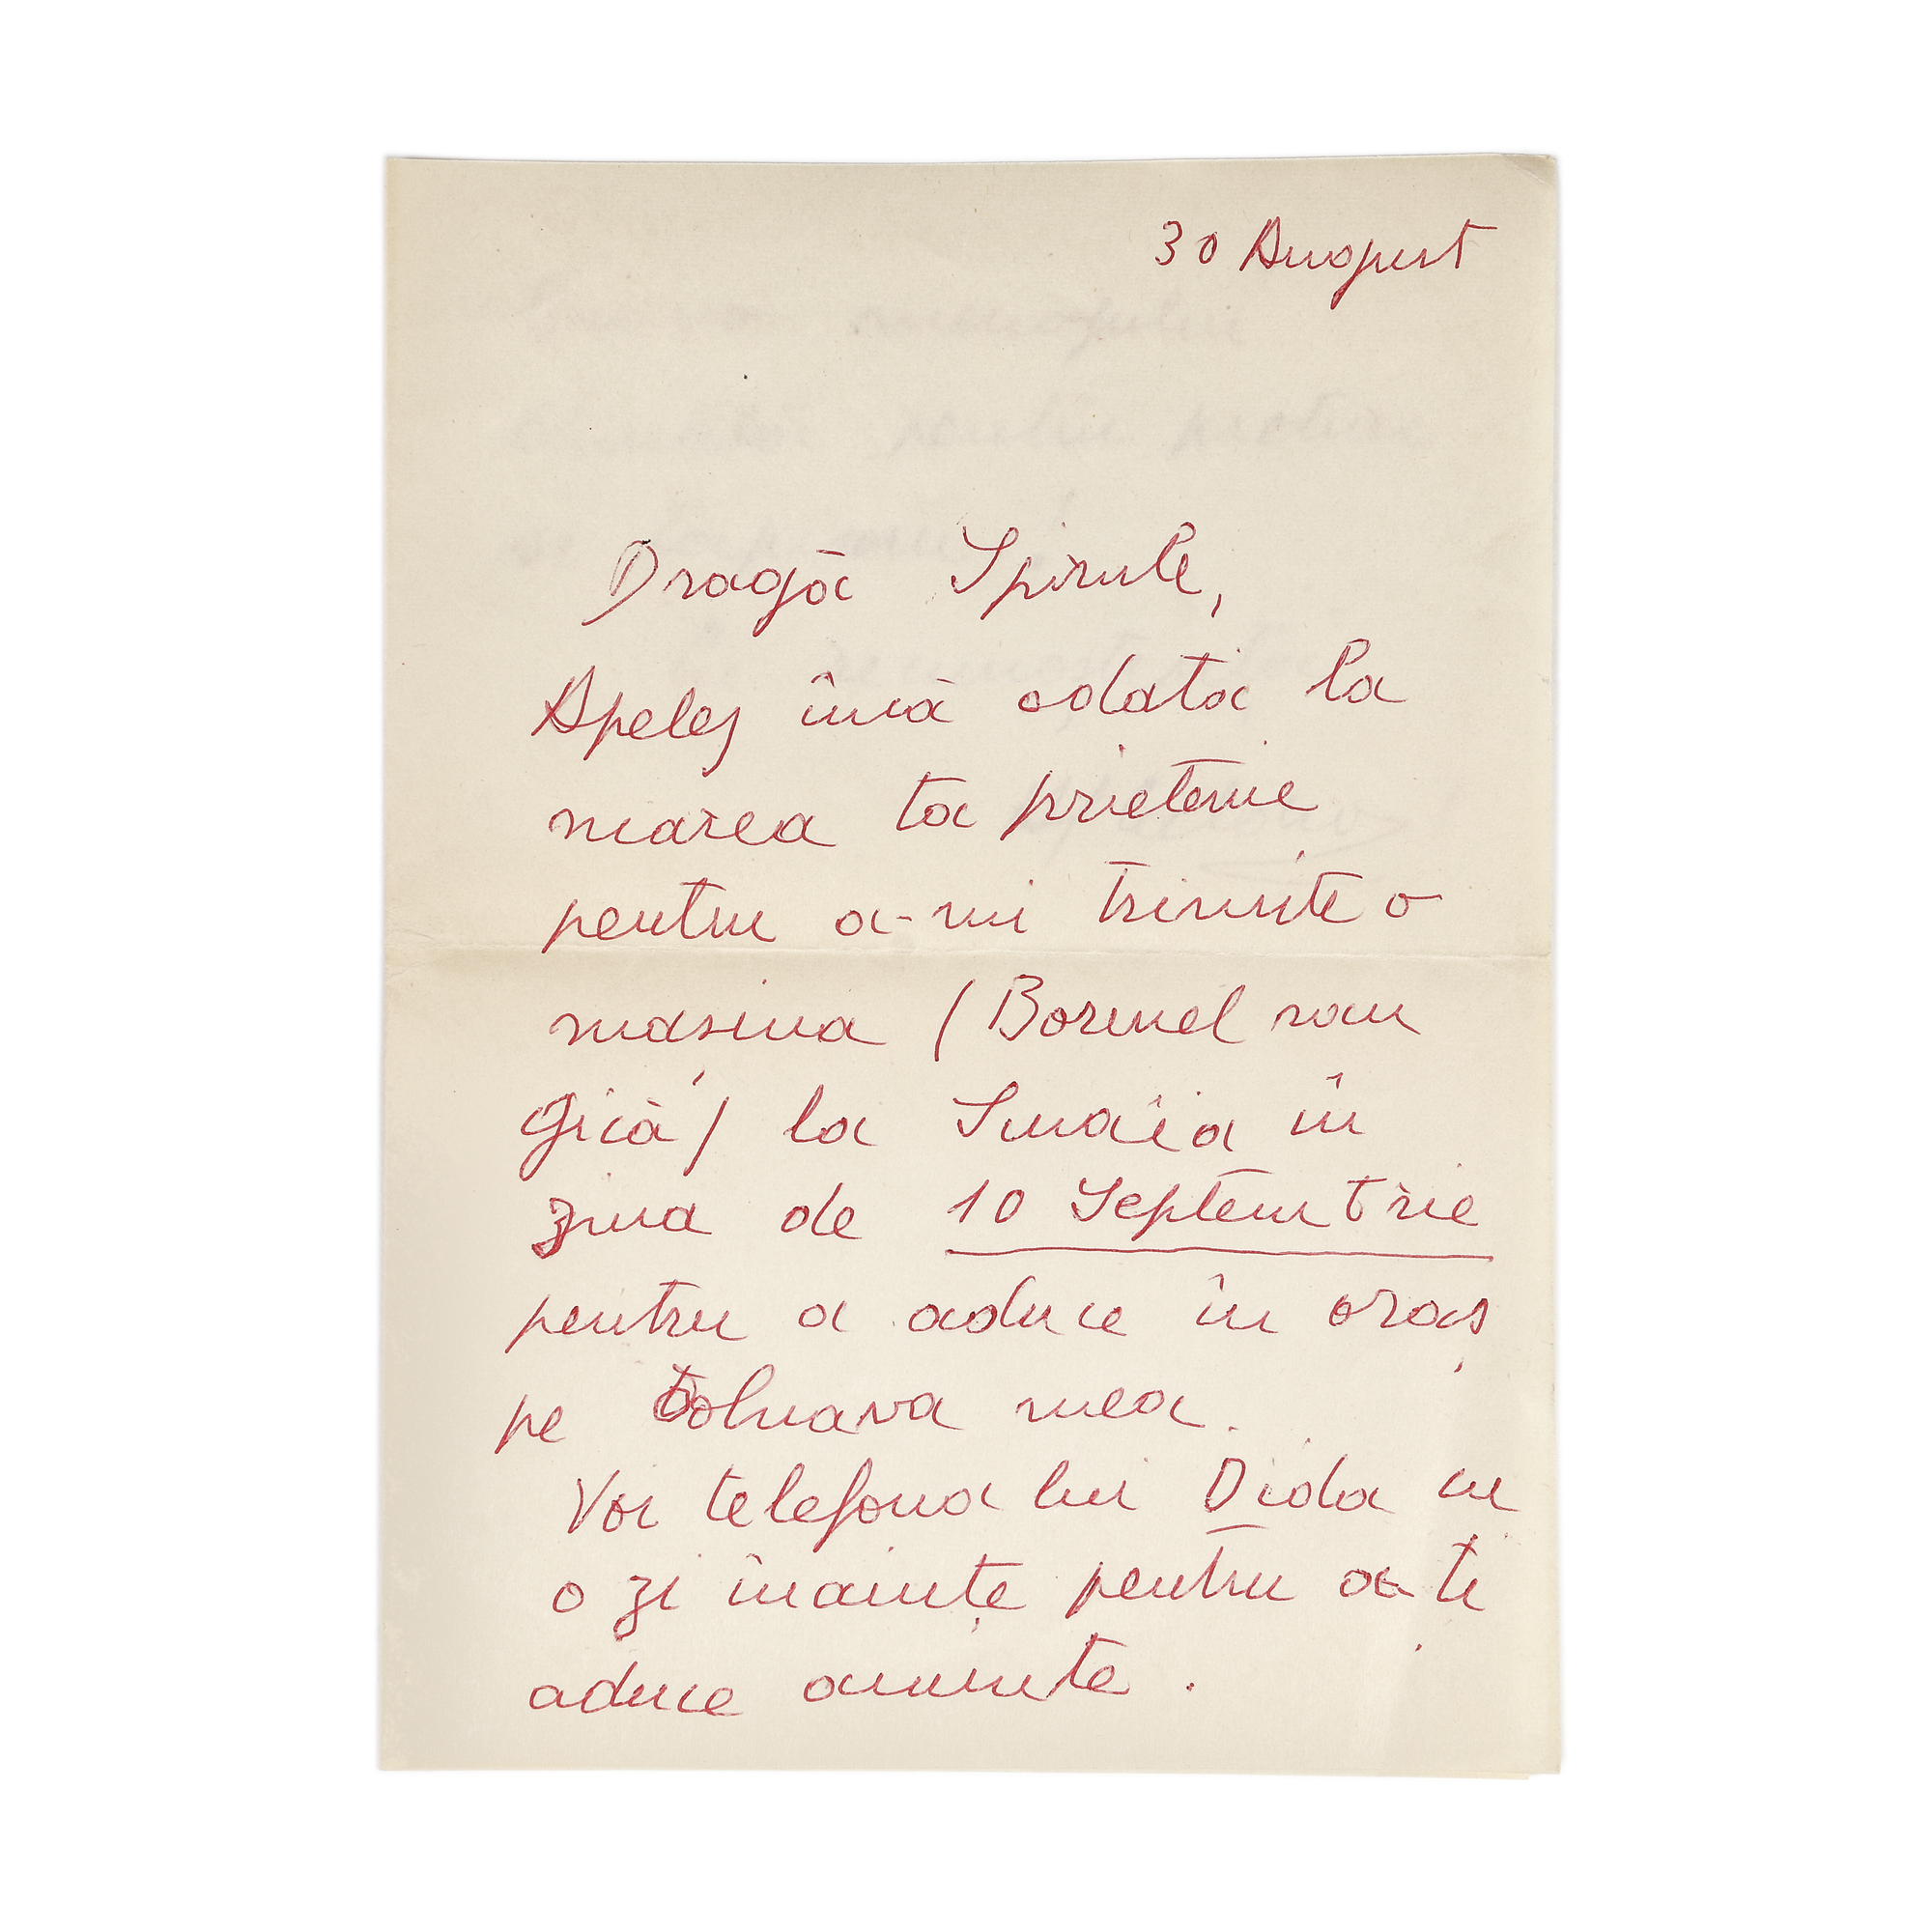 30 August
Dragă Spirule,
Apelez încă odată la
marea ta prietenie
pentru a-mi trimite o
mașina (Bormel sau
Gică) la Sinaia în
ziua de 10 Septembrie
pentru a aduce în oraș
pe bolnava mea.
Voi telefona lui Dida cu
o zi înainte pentru a-ți
aduce aminte.